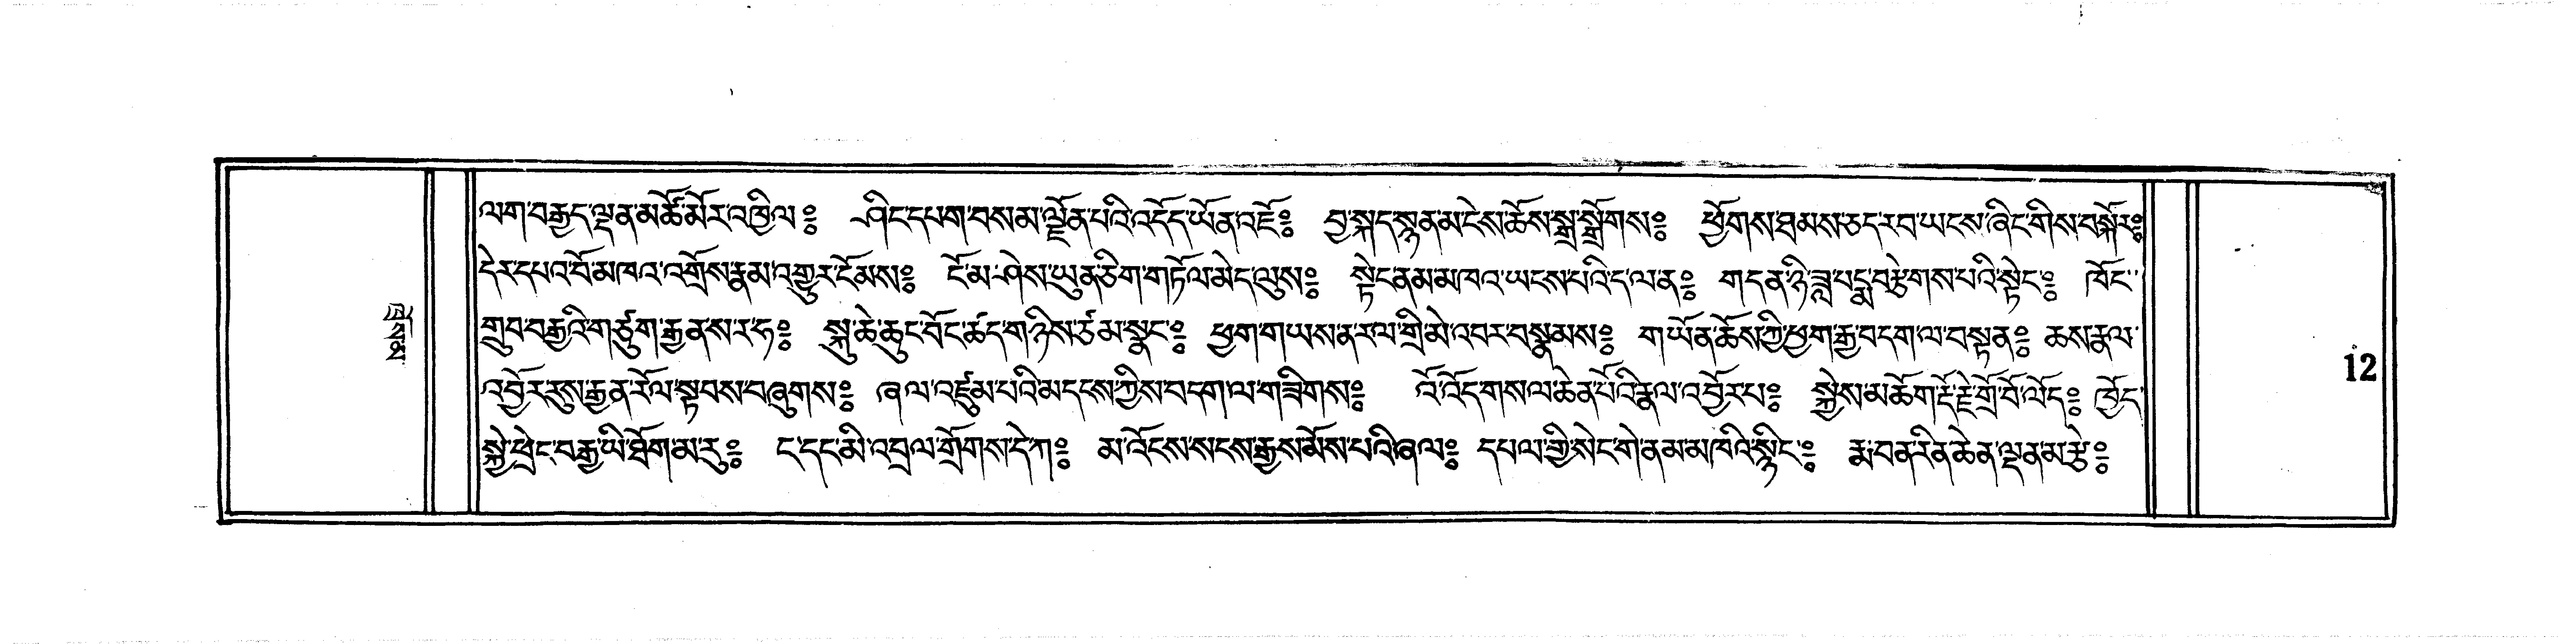 ལག་བརྒྱད་ལྡན་མཚོ་མོར་འཁྱིལ༔ ཤིང་དཔག་བསམ་ལྗོན་པའི་འདོད་ཡོན་འཛོ༔ བྱ་སྐད་སྙན་མ་ངེས་ཆོས་སྒྲ་སྒྲོགས༔ ཕྱོགས་ཐམས་ཅད་རབ་ཡངས་ཞིང་གིས་བསྐོར༔
དེར་དཔའ་བོ་མཁའ་འགྲོས་རྣམ་འགྱུར་ངོམས༔ ངོ་མ་ཤེས་ཡུན་ཅིག་གཏོལ་མེད་ལུས༔ སྟེང་ནམ་མཁའ་ཡངས་པའི་ད་ལན༔ གདན་ཉི་ཟླ་པདྨ་བརྩེགས་པའི་སྟེང༔ ཁོང་
གྲུབ་བརྒྱའི་གཙུག་རྒྱན་ས་ར་ཧ༔ སྐུ་ཆེ་ཆུང་བོང་ཚད་གཉིས་ཙམ་སྣང༔ ཕྱག་གཡས་ན་རལ་གྲི་མེ་འབར་བསྣམས༔ གཡོན་ཆོས་ཀྱི་ཕྱག་རྒྱ་བདག་ལ་བསྟན༔ ཆས་རྣལ་
འབྱོར་རུས་རྒྱན་རོལ་སྟབས་བཞུགས༔ ཞལ་འཛུམ་པའི་མདངས་ཀྱིས་བདག་ལ་གཟིགས༔ འོ་འོད་གསལ་ཆེན་པོའི་རྣལ་འབྱོར་པ༔ སྐྱེས་མཆོག་རྡོ་རྗེ་གྲོ་བོ་ལོད༔ ཁྱོད་
སྐྱེ་ཕྲེང་བརྒྱ་ཡི་ཐོག་མ་རུ༔ ང་དང་མི་འབྲལ་གྲོགས་དེ་ཀ༔ མ་འོངས་སངས་རྒྱས་མོས་པའི་ཞལ༔ དཔལ་གྱི་སེང་གེ་ནམ་མཁའི་སྙིང༔ རྨ་བན་རིན་ཆེན་ལྡན་མ་རྩེ༔
12